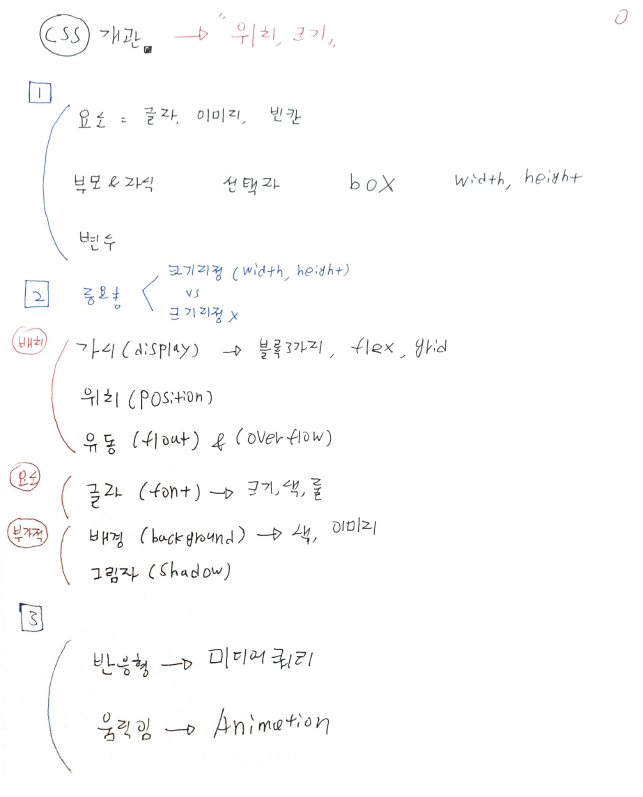 CSS 개관. → "위치, 크기"
0
1
요소 = 글자, 이미지, 빈칸
부모 & 자식 선택자 box width, height
변수
2 중요함 < 크기지정 (width, height)
vs
크기지정 x
배치 가시(display) → 블록3가지, flex, grid
위치(Position)
유동 (float) & (overflow)
요소 글자 (font) → 크기, 색, 룰
부가적 배경 (background) → 색, 이미지
그림자 (Shadow)
3
반응형 → 미디어쿼리
움직임 → Animation